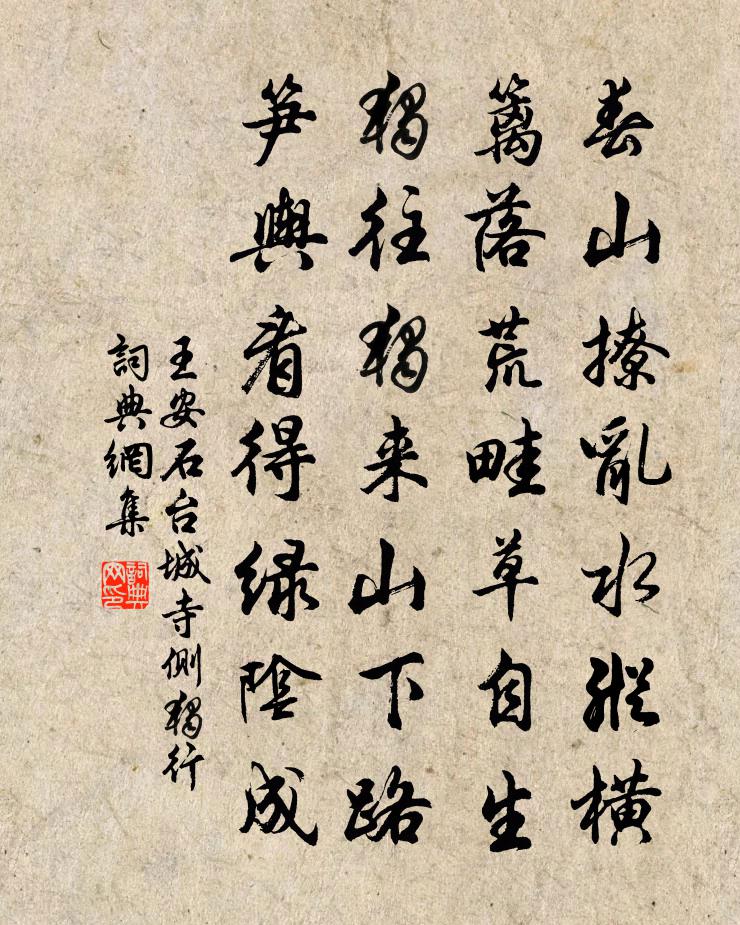 春山撩亂水縱橫
籬落荒畦草自生
獨往獨来山下路
笋輿看得緑陰成
王安石台城寺側獨行
詞典網集
詞典网印